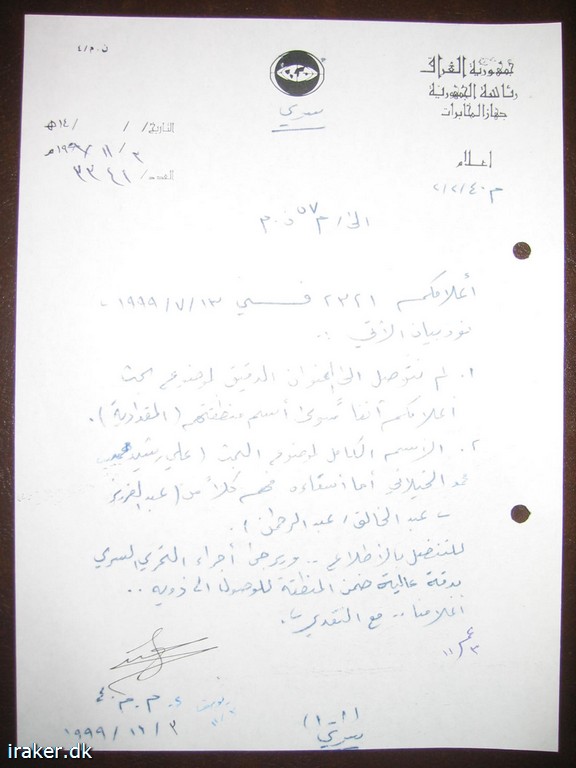 ن.م/٤
جمهورية العراق
رئاسة الجمهورية
جهاز المخابرات
سري
التاريخ/ / /١٤هـ
٣/١١/١٩٩٩م
العدد/ ٣٣٤١
اعلام
م٤٠/٢/٢
الى/ م٥٧
أعلامكم ٢٣٢١ في ١٣/٧/١٩٩٩ -
نود بيان الآتي :.
١. لم نتوصل الى العنوان الدقيق لموضوع بحث
أعلامكم آنفا سوى أسم منطقتهم (المقدادية).
٢. الاسم الكامل لموضوع البحث (علي رشيد
الخيلاني أما أشقاءه فهم كلاً من (عبد العزيز
عبد الخالق/ عبد الرحمن).
للتفضل بالأطلاع .. ويرجى أجراء التحري السري
بدقة عالية ضمن المنطقة للوصول الى ذويه ..
أعلامنا .. مع التقدير.
٣/١١
م.م.٤
٣/١١/١٩٩٩
(١-١)
سري
iraker.dk